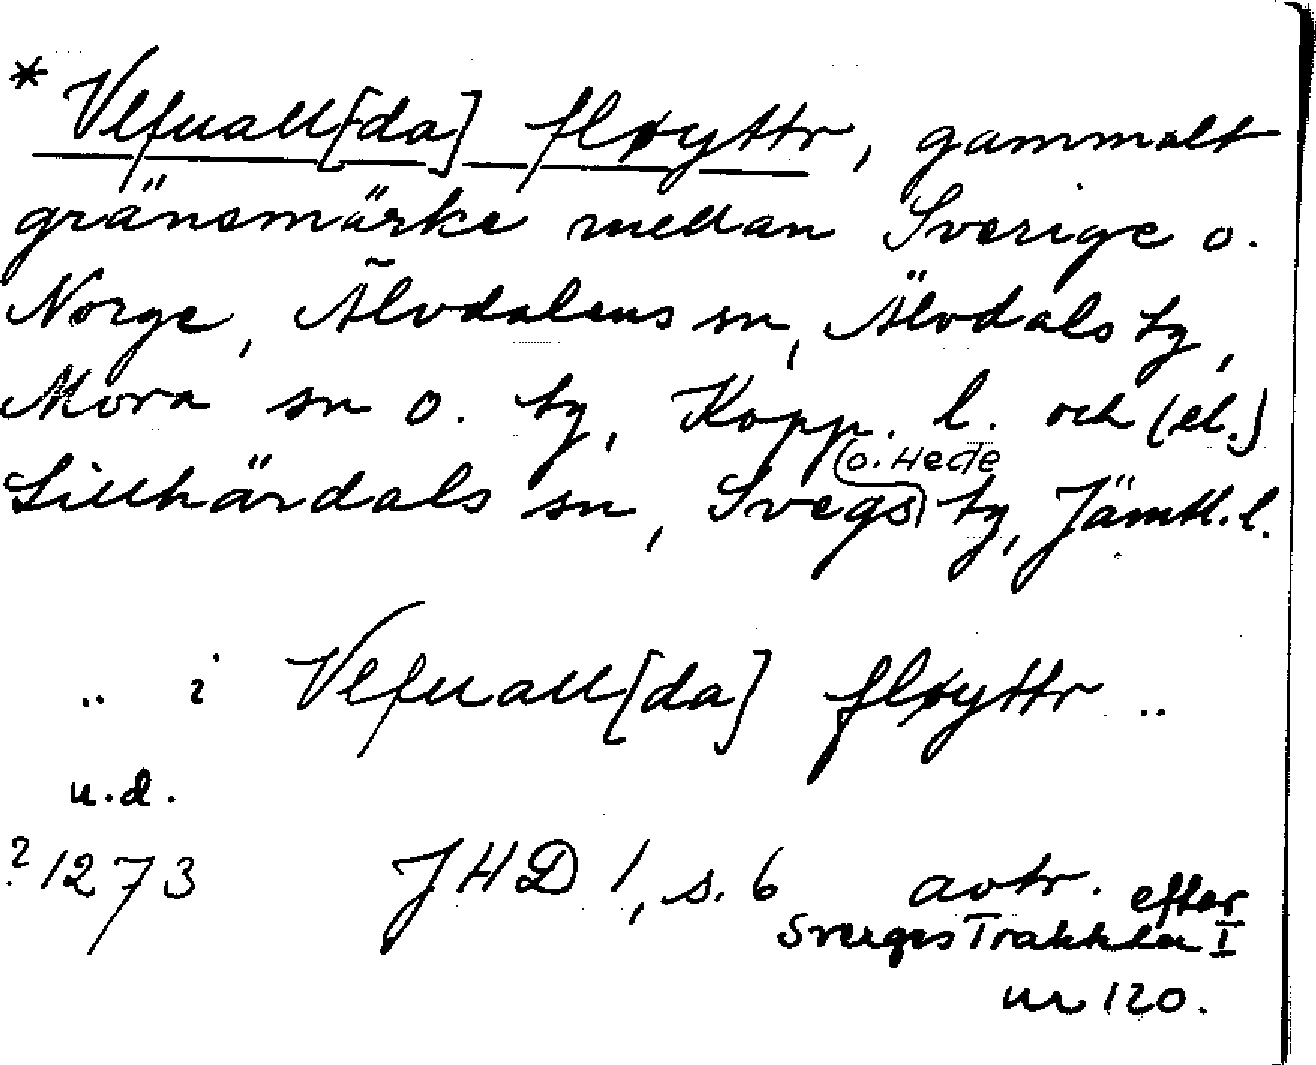 * Vlfuall[da] fløyttr, gammalt
gränsmärke mellan Sverige o.
Norge, Älvdalens sn, Älvdals tg,
Mora sn o. tg, Kopp. l. och (el.)
Lillhärdals sn, Svegs (o. Hede) tg, Jämtl. l.
.. i Vlfuall[da] fløyttr ..
u.d.
? 1273 JHD 1, s. 6 avtr. efter
Sverges Traktater I
nr 120.